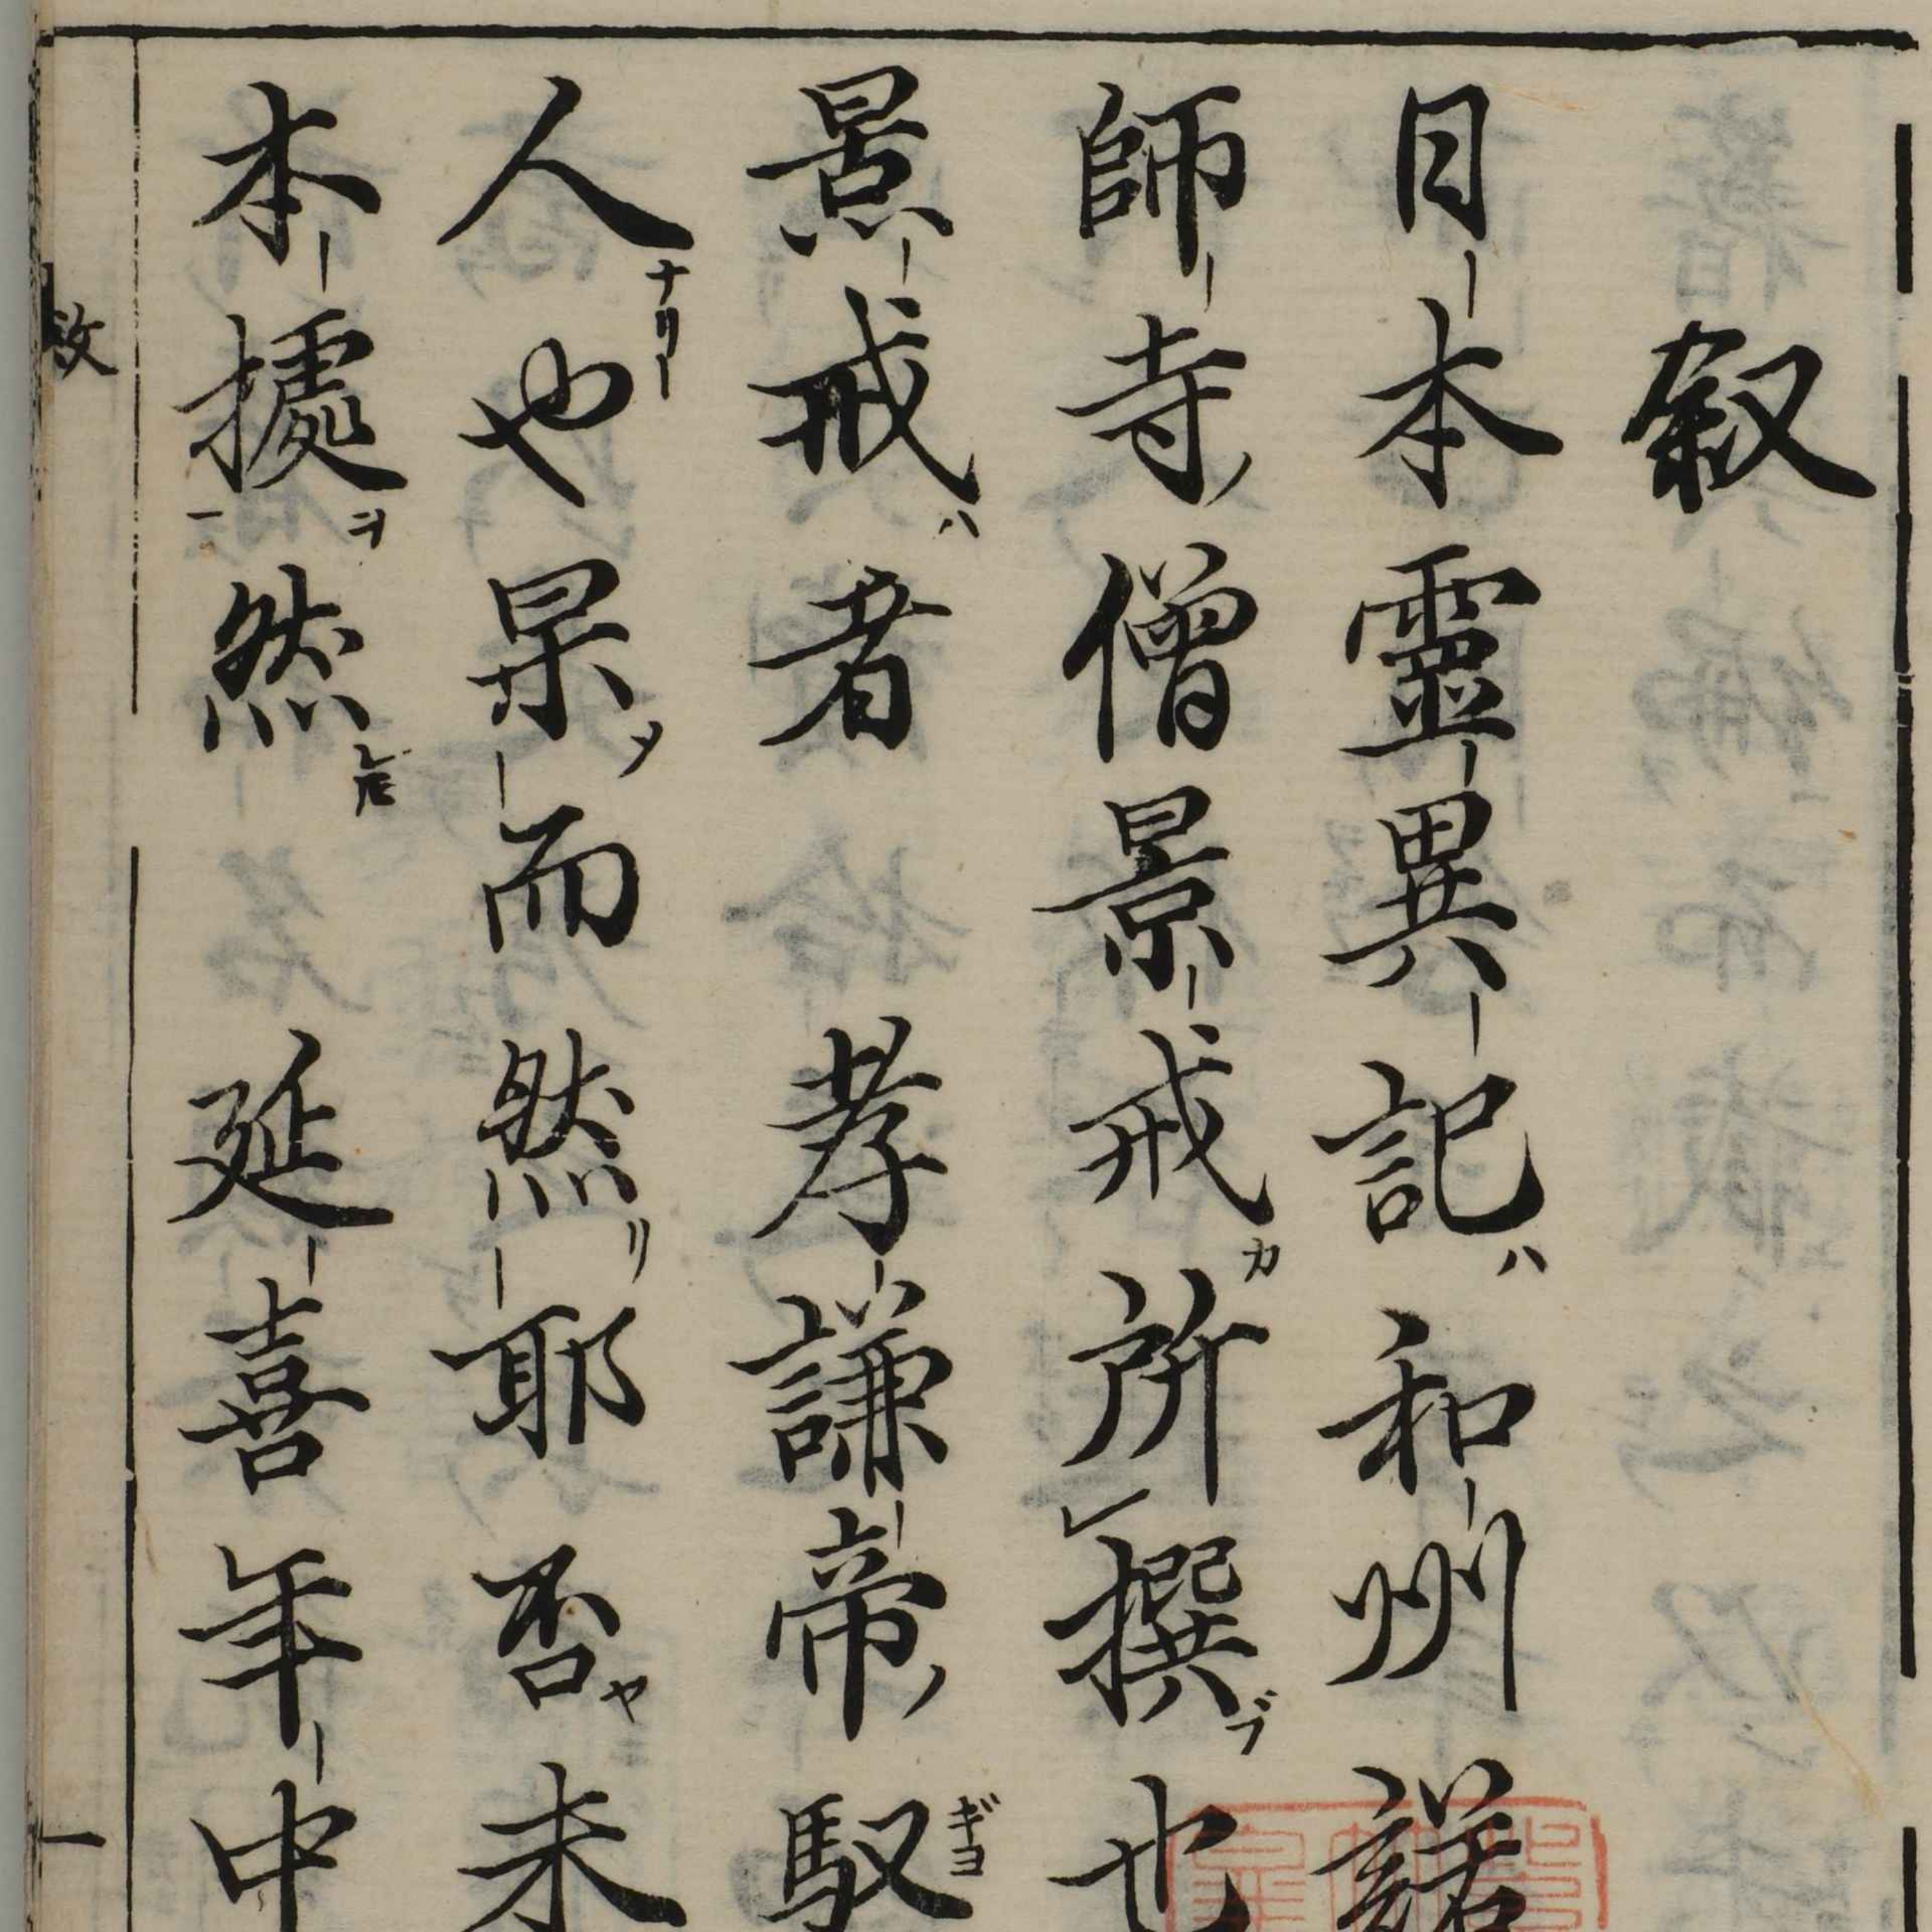 叙
日本靈異記ハ和州諾
師寺ノ僧景戒カ所撰ブ也
景戒ハ者孝謙帝ノ馭ギヨ
人ナリ也果メ而然リ耶否ヤ未
本據ヲ一然レ𪜈延喜年中
叙
一